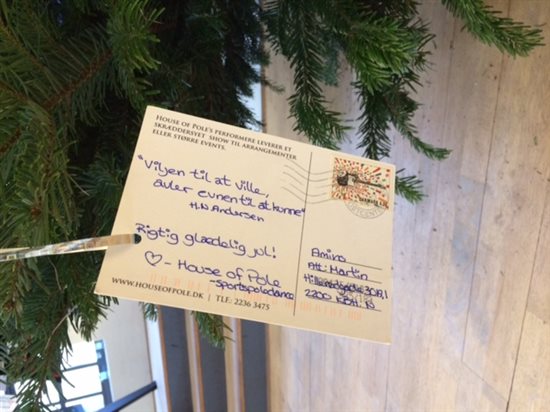 HOUSE OF POLE'S PERFORMERE LEVERER ET
SKRÆDDERSYET SHOW TIL ARRANGEMENTER
ELLER STØRRE EVENTS.
"Viljen til at ville,
avler evnen til at kunne"
H.N Andersen
Rigtig glædelig jul!
♡ - House of Pole
- Sportspoledance
WWW.HOUSEOFPOLE.DK | TLF: 2236 3475
Amino
Att: Martin
30A,1
2200 KBH. N